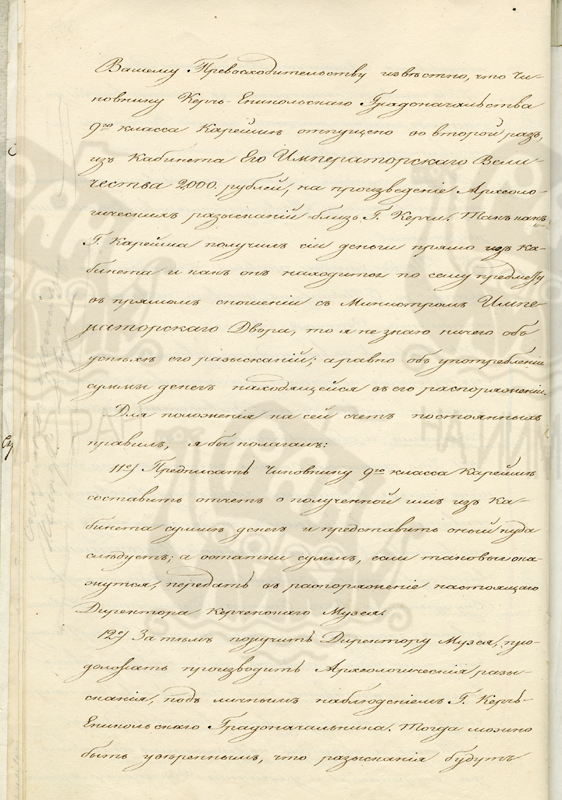 Вашему Превосходительству известно, что Чи-
новнику Керчь-Еникольскаго Градоначальства
9го класса Карейшѣ отпущено во второй разъ,
изъ Кабинета Его Императорскаго Вели-
чества 2000. рублей, на произведеніе Археоло-
гическихъ разысканій близь Г. Керчи. Такъ какъ
Г. Карейша получилъ сіи деньги прямо изъ Ка-
бинета и какъ онъ находится по сему предмету
въ прямомъ сношеніи съ Министромъ Импе-
раторскаго Двора, то я не знаю ничего объ
успѣхѣ его разысканій; а равно объ употребленіи
суммы денегъ находящейся въ его распоряженіи.
Для положенія на сей счетъ постоянныхъ
правилъ, я бы полагалъ:
11е) Предписать Чиновнику 9го класса Карейшѣ
составить отчетъ о полученной имъ изъ Ка-
бинета суммѣ денегъ и представить оный куда
слѣдуетъ; а остатки суммъ, если таковые ока-
жутся, передать въ распоряженіе настоящаго
Директора Керченскаго Музея.
12е) За тѣмъ поручить Директору Музея, про-
должать производить Археологическія разы-
сканія, подъ личнымъ наблюденіемъ Г. Керчь-
Еникольскаго Градоначальника. Тогда можно
быть увѣреннымъ, что разысканія будутъ